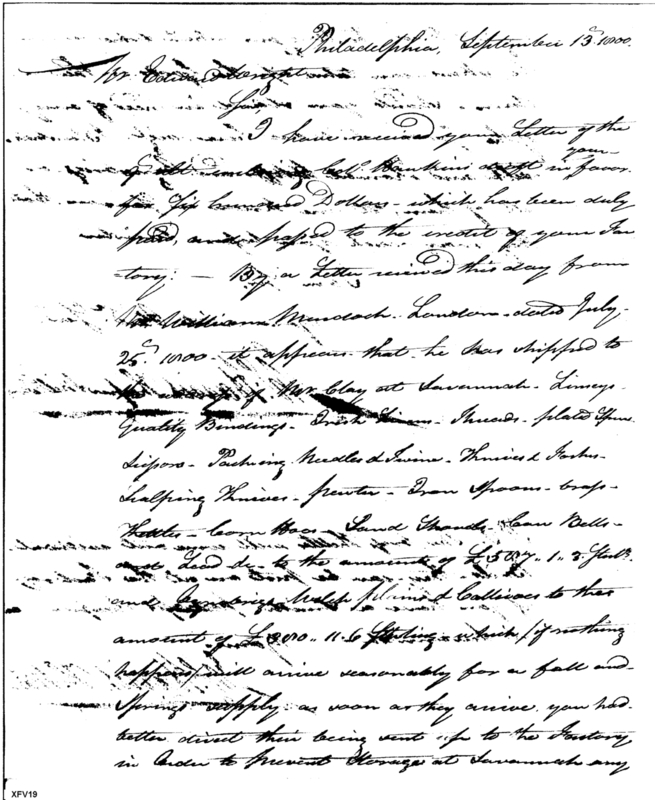 Philadelphia, September 13th 1800.
Mr Edward Wright
Sir
I have received your Letter of the
Hawkins draft in your favor
for Six hundred Dollars - which has been duly
paid, and passed to the credit of your Fac
tory. - By a Letter received this day from
Mr William Murdoch. London - dated July.
25th 1800 - it appears that he has shipped to
Mr Clay at Savannah - Linseys -
Quality Bindings - Irish Linens - Threads - plated Spurs
Scissors - Packing Needles & Twine - Knives & Forks -
Scalping Knives - pewter - Iron Spoons - brass
Kettles - Corn Hoes - Cow Bells -
and Lead &c - to the amount of £ 1 .. 3. Sterlg
and & Callicoes to the
amount of £ 11.6 Sterling - which (if nothing
happens) will arrive seasonably for a fall and
Spring supply. as soon as they arrive you had
better direct their being sent up to the Factory
in Order to prevent Storage at Savannah any
XFV19